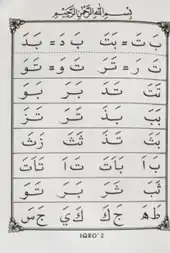 بِسْمِ اللهِ الرَّحْمٰنِ الرَّحِيْمِ
بَ تَ = بَتَ بَ دَ = بَدَ
تَ رَ = تَرَ تَ وَ = تَوَ
تَتَ تَدَ بَرَ بَوَ
بَبَ بَذَ تَرَ تَزَ
بَثَ ثَذَ ثَثَ زَثَ
بَ اَ بَاَتَ تَ اَ تَاَتَ
ثَبَ ثَرَ بَرَ تَوَ
طَ هَ جَ كَ كَ يَ جَ سَ
IQRO' 2